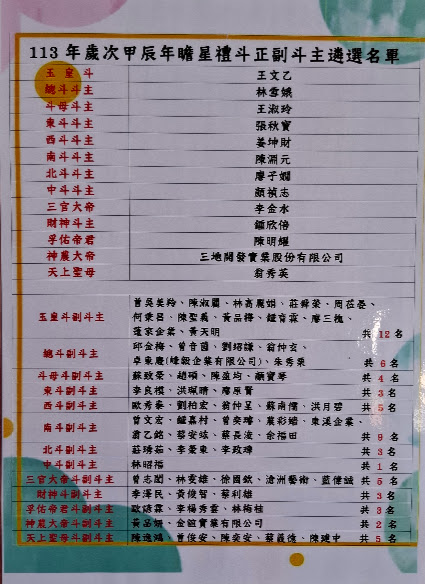 113年歲次甲辰年瞻星禮斗正副斗主遴選名單
玉皇斗 王文乙
總斗斗主 林雲娥
斗母斗主 王淑玲
東斗斗主 張秋寶
西斗斗主 姜坤財
南斗斗主 陳淵元
北斗斗主 廖子嫺
中斗斗主 顏禎志
三官大帝 李金水
財神斗主 鍾欣倍
孚佑帝君 陳明耀
神農大帝 三地開發實業股份有限公司
天上聖母 翁秀英
玉皇斗副斗主 曾吳美羚、陳淑麗、林高鳳娟、莊舜榮、周莅晏、
何秉昌、陳聖義、黃品得、鍾育霖、廖三槐、
蓬家企業、黃天明 共 12 名
總斗副斗主 邱金梅、曾音茵、劉紹謙、翁仲玄、
卓東慶(峰毅企業有限公司)、朱秀榮 共 6 名
斗母斗副斗主 蘇致榮、趙碩、陳盈均、顏寶琴 共 4 名
東斗副斗主 李良模、洪珮晴、廖原賢 共 3 名
西斗副斗主 歐秀泰、劉柏宏、翁仲呈、蘇南儒、洪月碧 共 5 名
南斗副斗主 曾文宏、鍾嘉村、曾奕瑋、農彩嬑、東溪企業、
翁乙銘、蔡安竑、蔡長浚、余福田 共 9 名
北斗副斗主 莊琇茹、李榮東、李政璋 共 3 名
中斗副斗主 林昭福 共 1 名
三官大帝斗副斗主 曾志閎、林雯雄、徐國欽、滄洲藝術、藍偉誠 共 5 名
財神斗副斗主 李澤民、黃俊智、蔡利雄 共 3 名
孚佑帝君斗副斗主 歐鎴霖、李楊秀臺、林梅桂 共 3 名
神農大帝斗副斗主 黃品妍、金鎧實業有限公司 共 2 名
天上聖母斗副斗主 陳逸鴻、曾俊安、陳奕安、蔡義德、陳建中 共 5 名